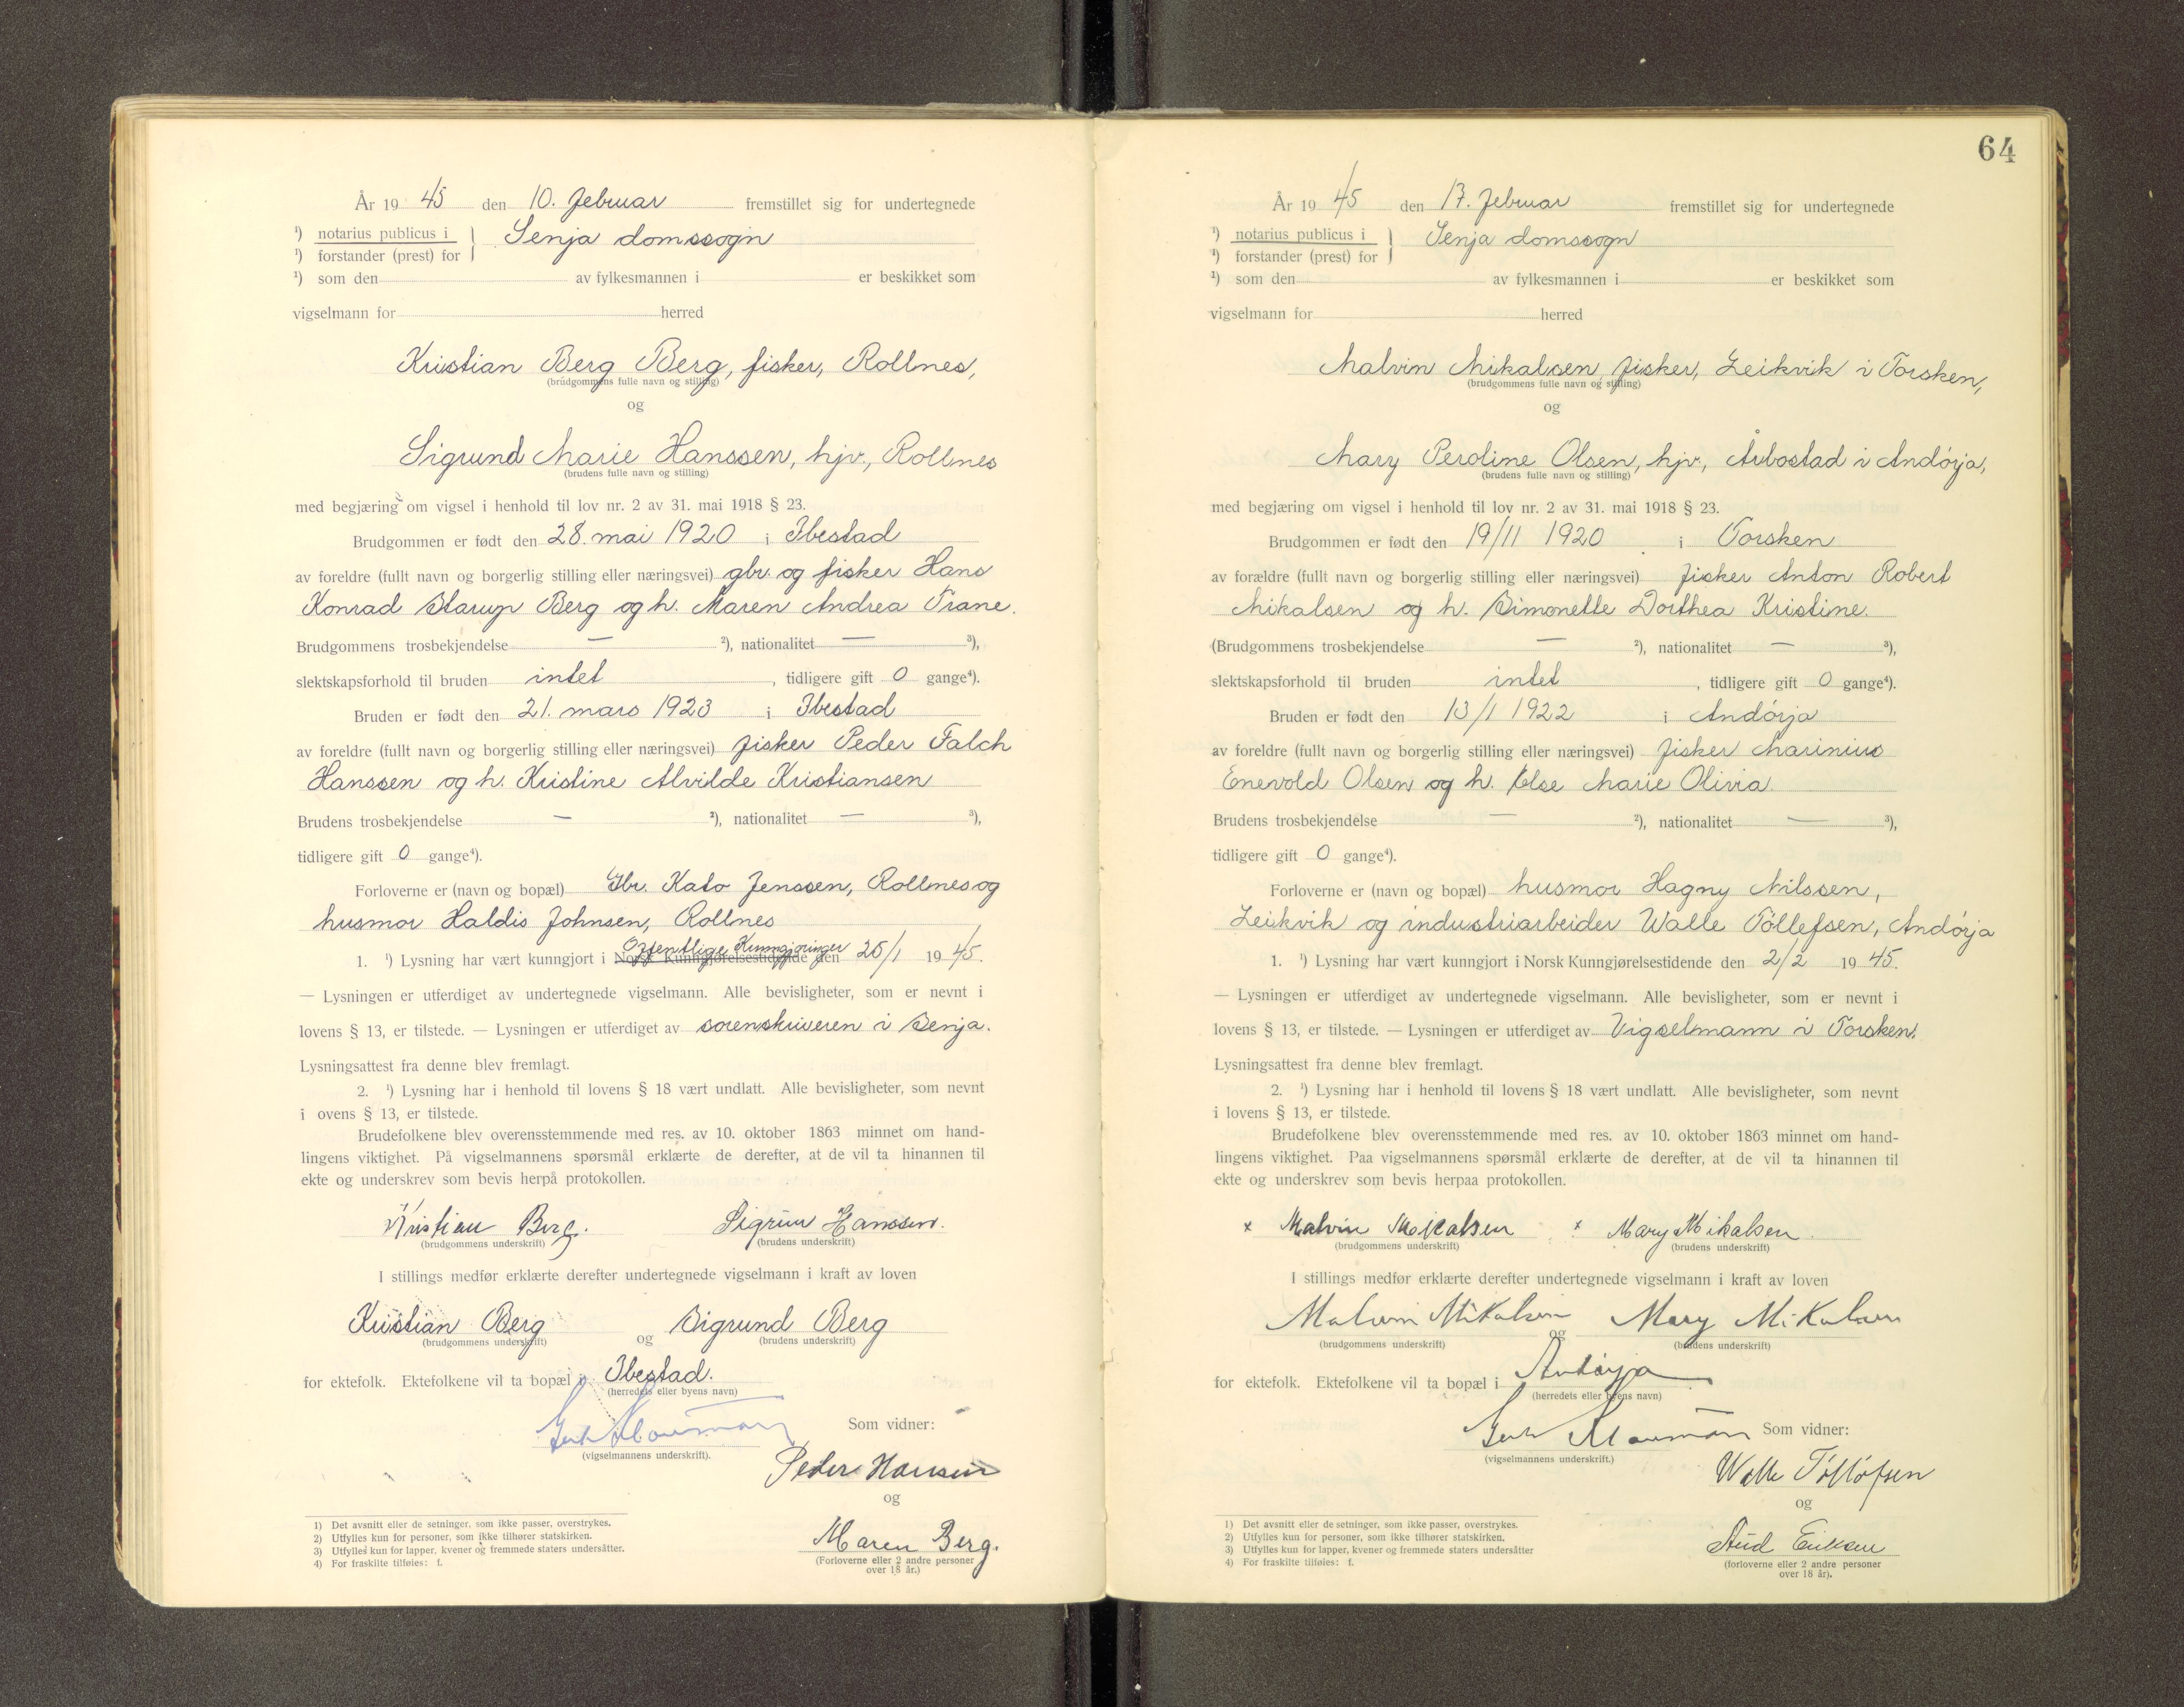 År 19 45 den 10. februar fremstillet sig for undertegnede
¹) notarius publicus i } Senja domssogn
¹) forstander (prest) for
¹) som den av fylkesmannen i er beskikket som
vigselmann for herred
Kristian Berg Berg, fisker, Rollnes,
(brudgommens fulle navn og stilling)
og
Sigrund Marie Hanssen, hjv., Rollnes
(brudens fulle navn og stilling)
med begjæring om vigsel i henhold til lov nr. 2 av 31. mai 1918 § 23.
Brudgommen er født den 28. mai 1920 i Ibestad
av foreldre (fullt navn og borgerlig stilling eller næringsvei) gbr. og fisker Hans
Konrad Starup Berg og h. Maren Andrea Trane.
Brudgommens trosbekjendelse — ²), nationalitet — ³),
slektskapsforhold til bruden intet, tidligere gift 0 gange⁴).
Bruden er født den 21. mars 1923 i Ibestad
av foreldre (fullt navn og borgerlig stilling eller næringsvei) fisker Peder Falch
Hanssen og h. Kristine Alvilde Kristiansen
Brudens trosbekjendelse — ²), nationalitet — ³),
tidligere gift 0 gange⁴).
Forloverne er (navn og bopæl) Gbr. Kato Jenssen, Rollnes og
husmor Haldis Johnsen, Rollnes
Offentlige Kunngjøringer
1. ¹) Lysning har vært kunngjort i Norsk Kunngjørelsestidende den 25/1 1945.
— Lysningen er utferdiget av undertegnede vigselmann. Alle bevisligheter, som er nevnt i
lovens § 13, er tilstede. — Lysningen er utferdiget av sorenskriveren i Senja.
Lysningsattest fra denne blev fremlagt.
2. ¹) Lysning har i henhold til lovens § 18 vært undlatt. Alle bevisligheter, som nevnt
i ovens § 13, er tilstede.
Brudefolkene blev overensstemmende med res. av 10. oktober 1863 minnet om hand-
lingens viktighet. På vigselmannens spørsmål erklærte de derefter, at de vil ta hinannen til
ekte og underskrev som bevis herpå protokollen.
Kristian Berg. Sigrun Hanssen.
(brudgommens underskrift) (brudens underskrift)
I stillings medfør erklærte derefter undertegnede vigselmann i kraft av loven
Kristian Berg og Sigrund Berg
(brudgommens underskrift) (brudens underskrift)
for ektefolk. Ektefolkene vil ta bopæl i Ibestad.
(herredets eller byens navn)
Som vidner:
(vigselmannens underskrift).
Peder Hansen
og
Maren Berg.
(Forloverne eller 2 andre personer
over 18 år.)
1) Det avsnitt eller de setninger, som ikke passer, overstrykes.
2) Utfylles kun for personer, som ikke tilhører statskirken.
3) Utfylles kun for lapper, kvener og fremmede staters undersåtter.
4) For fraskilte tilføies: f.
64
År 19 45 den 17. februar fremstillet sig for undertegnede
¹) notarius publicus i } Senja domssogn
¹) forstander (prest) for
¹) som den av fylkesmannen i er beskikket som
vigselmann for herred
Malvin Mikalsen, fisker, Leikvik i Torsken,
(brudgommens fulle navn og stilling)
og
Mary Peroline Olsen, hjv., Årbostad i Andörja,
(brudens fulle navn og stilling)
med begjæring om vigsel i henhold til lov nr. 2 av 31. mai 1918 § 23.
Brudgommen er født den 19/11 1920 i Torsken
av forældre (fullt navn og borgerlig stilling eller næringsvei) fisker Anton Robert
Mikalsen og h. Simonette Dorthea Kristine.
(Brudgommens trosbekjendelse — ²), nationalitet — ³),
slektskapsforhold til bruden intet, tidligere gift 0 gange⁴).
Bruden er født den 13/1 1922 i Andörja
av foreldre (fullt navn og borgerlig stilling eller næringsvei) fisker Marinius
Enevold Olsen og h. Else Marie Olivia.
Brudens trosbekjendelse — ²), nationalitet — ³),
tidligere gift 0 gange⁴).
Forloverne er (navn og bopæl) husmor Hagny Nilssen,
Leikvik og industriarbeider Walle Töllefsen, Andörja
1. ¹) Lysning har vært kunngjort i Norsk Kunngjørelsestidende den 2/2 1945.
— Lysningen er utferdiget av undertegnede vigselmann. Alle bevisligheter, som er nevnt i
lovens § 13, er tilstede. — Lysningen er utferdiget av Vigselmann i Torsken.
Lysningsattest fra denne blev fremlagt.
2. ¹) Lysning har i henhold til lovens § 18 vært undlatt. Alle bevisligheter, som nevnt
i lovens § 13, er tilstede.
Brudefolkene blev overensstemmende med res. av 10. oktober 1863 minnet om hand-
lingens viktighet. Paa vigselmannens spørsmål erklærte de derefter, at de vil ta hinannen til
ekte og underskrev som bevis herpaa protokollen.
x Malvin Mikalsen x Mary Mikalsen
(brudgommens underskrift) (brudens underskrift)
I stillings medfør erklærte derefter undertegnede vigselmann i kraft av loven
Malvin Mikalsen og Mary Mikalsen
(brudgommens underskrift) (brudens underskrift)
for ektefolk. Ektefolkene vil ta bopæl i Andörja
(herredets eller byens navn)
Som vidner:
(vigselmannens underskrift.)
Walle Töllöfsen
og
Eriksen
(forloverne eller 2 andre personer
over 18 år).
1) Det avsnitt eller de setninger, som ikke passer, overstrykes.
2) Utfylles kun for personer, som ikke tilhører statskirken.
3) Utfylles kun for lapper, kvener og fremmede staters undersåtter
4) For fraskilte tilføies: f.